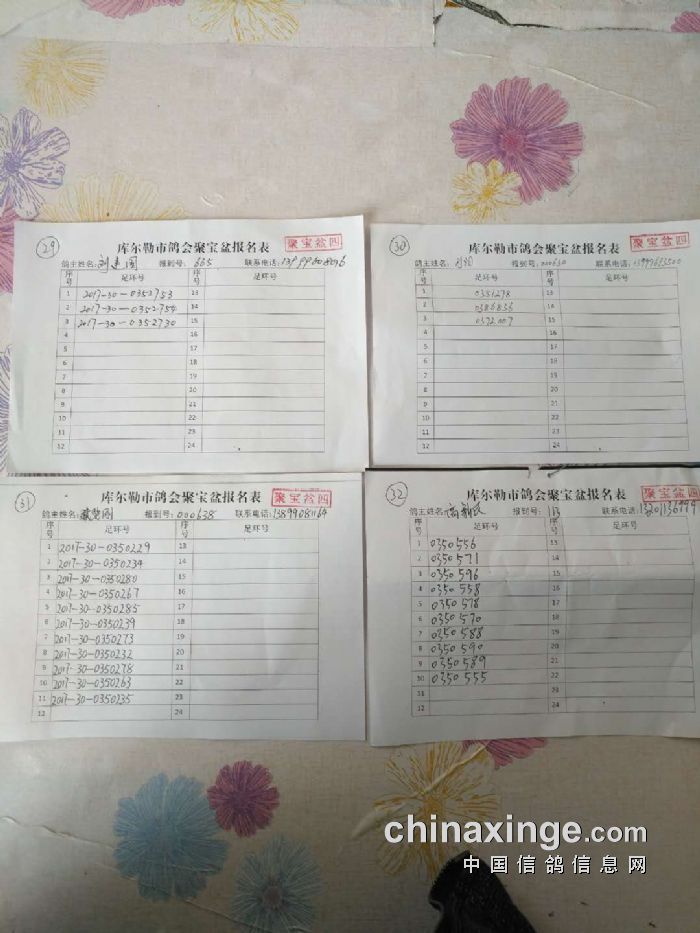 29 库尔勒市鸽会聚宝盆报名表 聚宝盆四
鸽主姓名: 刘建国 报到号: 665 联系电话:
序号 足环号 序号 足环号
1 2017-30-0352753 13
2 2017-30-0352754 14
3 2017-30-0352730 15
4 16
5 17
6 18
7 19
8 20
9 21
10 22
11 23
12 24
30 库尔勒市鸽会聚宝盆报名表 聚宝盆四
鸽主姓名: 报到号: 000630 联系电话:
序号 足环号 序号 足环号
1 0351278 13
2 0386836 14
3 0372007 15
4 16
5 17
6 18
7 19
8 20
9 21
10 22
11 23
12 24
31 库尔勒市鸽会聚宝盆报名表 聚宝盆四
鸽主姓名: 报到号: 000638 联系电话: 13899081164
序号 足环号 序号 足环号
1 2017-30-0350229 13
2 2017-30-0350234 14
3 2017-30-0350280 15
4 2017-30-0350267 16
5 2017-30-0350285 17
6 2017-30-0350239 18
7 2017-30-0350273 19
8 2017-30-0350232 20
9 2017-30-0350278 21
10 2017-30-0350263 22
11 2017-30-0350235 23
12 24
32 库尔勒市鸽会聚宝盆报名表 聚宝盆四
鸽主姓名: 报到号: 联系电话:
序号 足环号 序号 足环号
1 0350556 13
2 0350571 14
3 0350596 15
4 0350558 16
5 0350578 17
6 0350570 18
7 0350588 19
8 0350590 20
9 0350589 21
10 0350555 22
11 23
12 24
chinaxinge.com
中国信鸽信息网